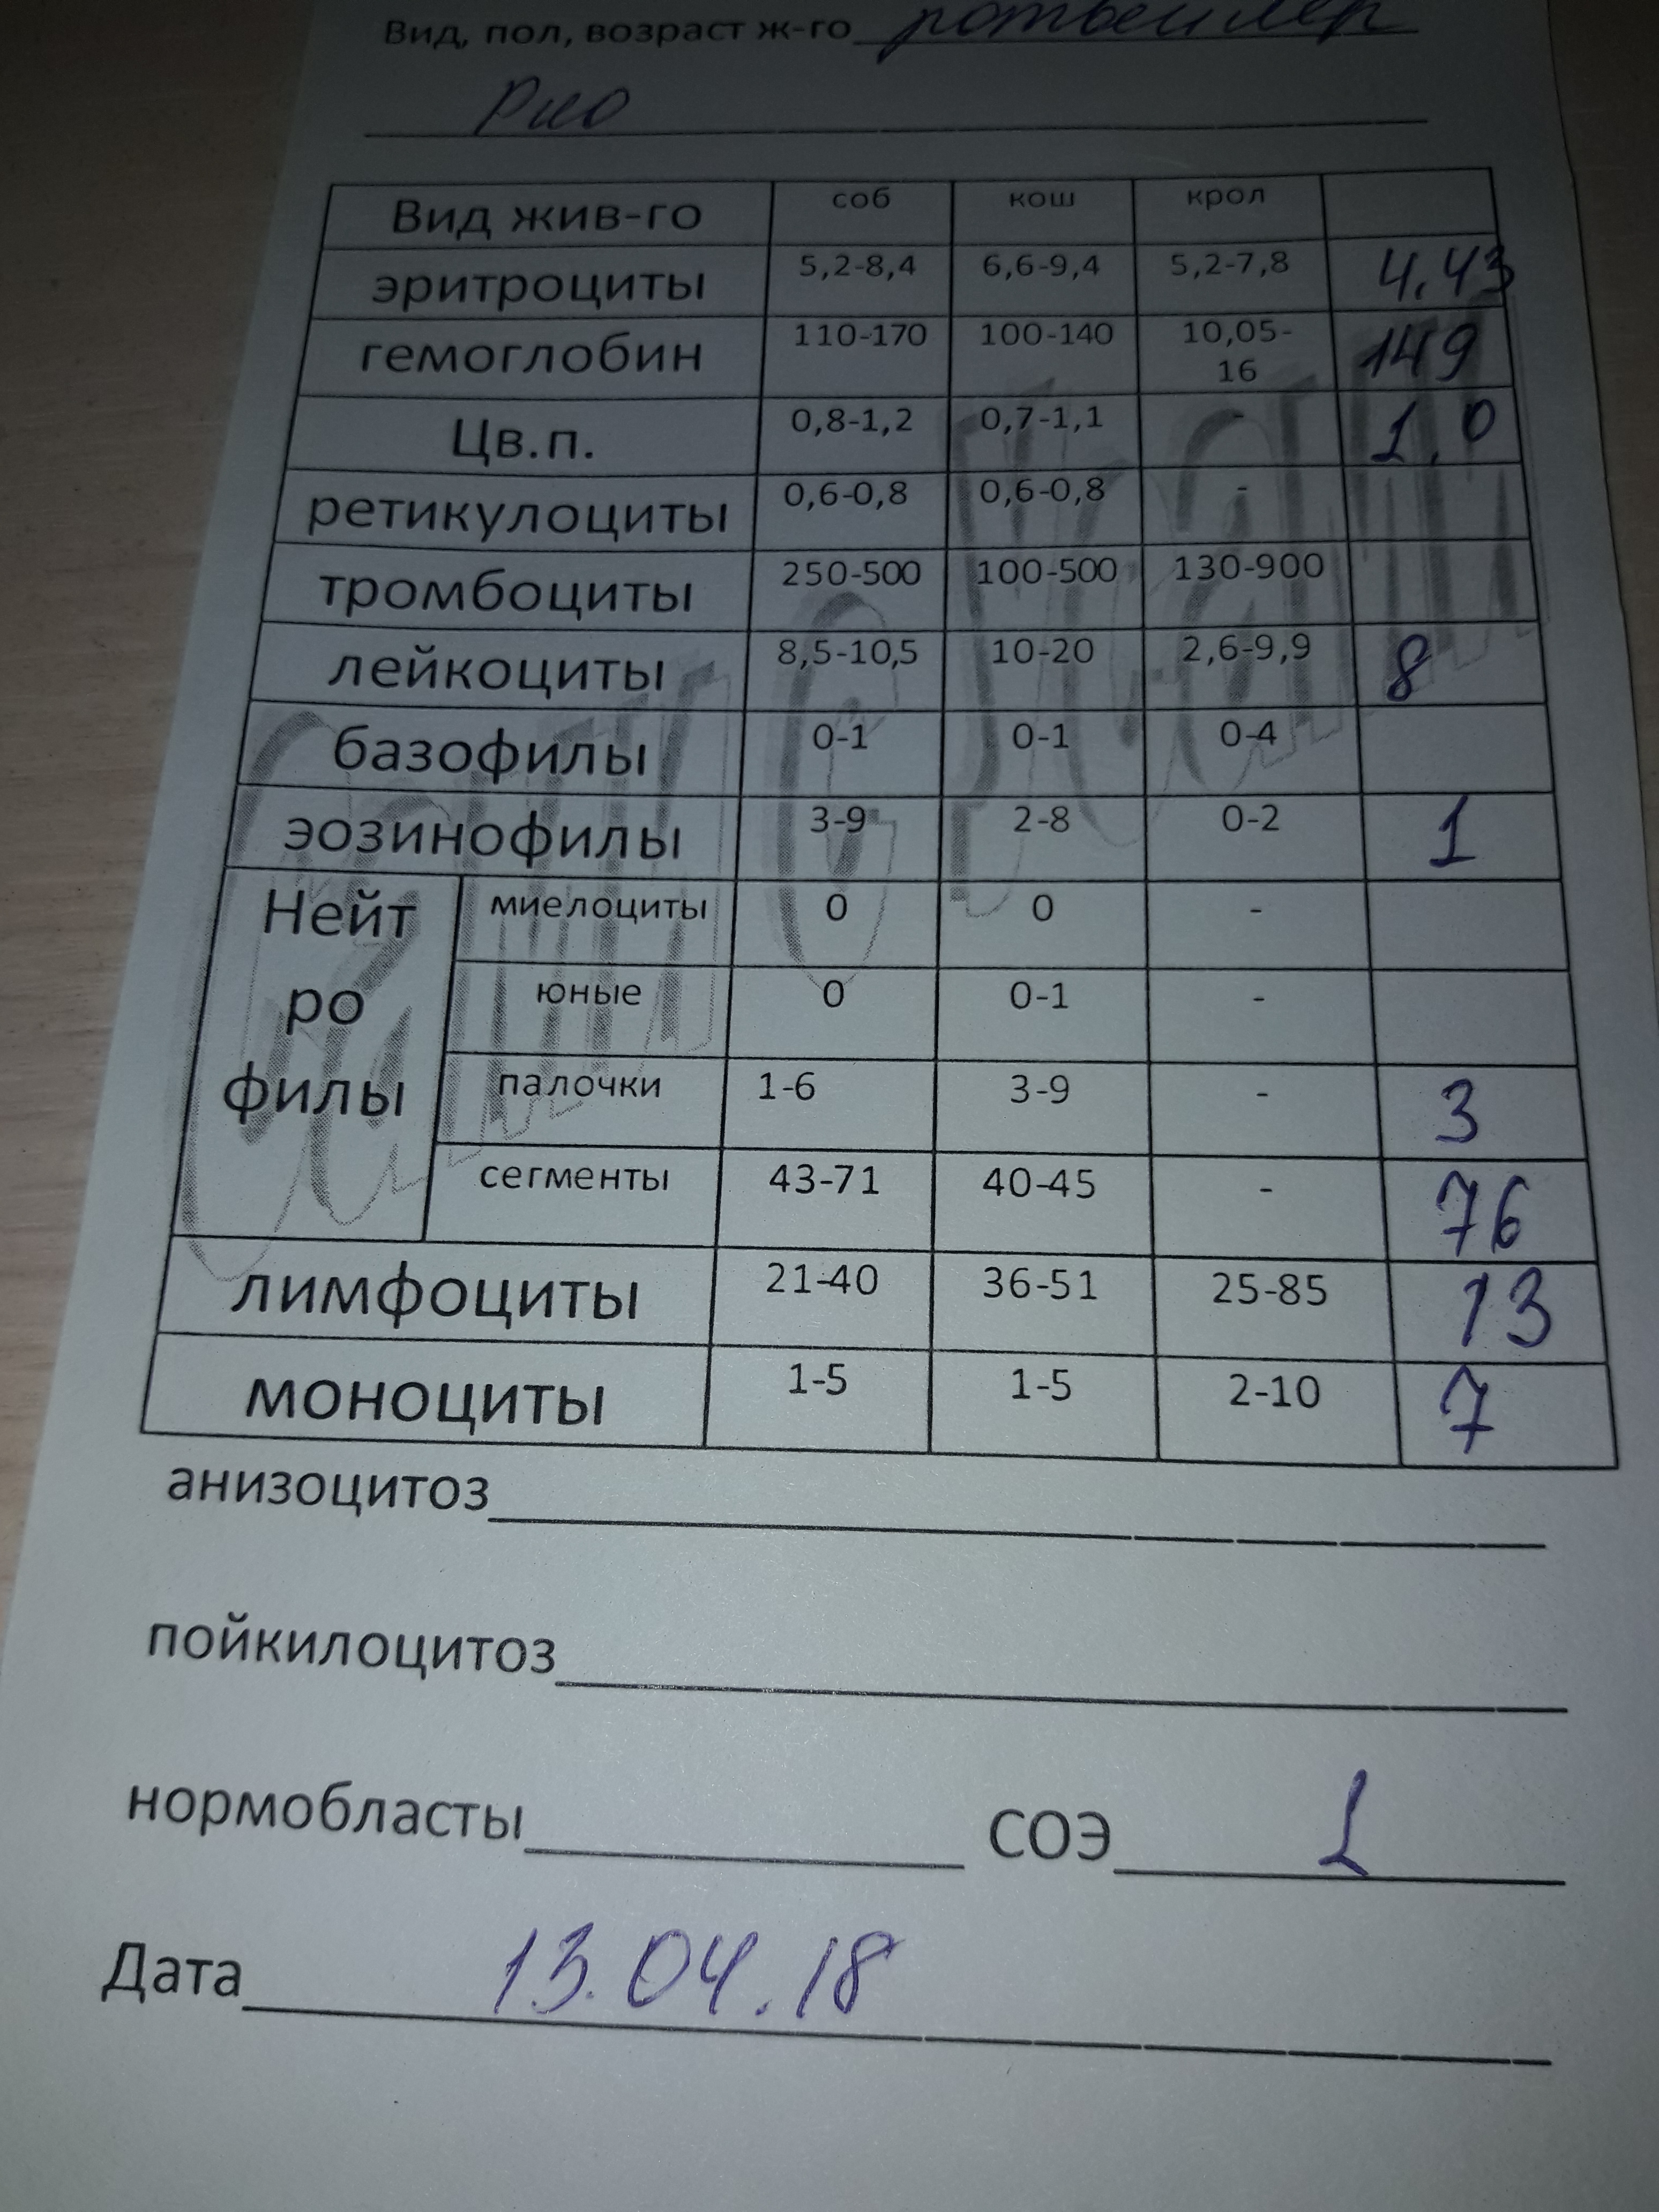 Вид, пол, возраст ж-го ротвейлер
Рио
Вид жив-го соб кош крол
эритроциты 5,2-8,4 6,6-9,4 5,2-7,8 4.43
гемоглобин 110-170 100-140 10,05-16 149
Цв.п. 0,8-1,2 0,7-1,1 - 1.0
ретикулоциты 0,6-0,8 0,6-0,8 -
тромбоциты 250-500 100-500 130-900
лейкоциты 8,5-10,5 10-20 2,6-9,9 8
базофилы 0-1 0-1 0-4
эозинофилы 3-9 2-8 0-2 1
Нейтрофилы миелоциты 0 0 -
юные 0 0-1 -
палочки 1-6 3-9 - 3
сегменты 43-71 40-45 - 76
лимфоциты 21-40 36-51 25-85 13
моноциты 1-5 1-5 2-10 7
анизоцитоз
пойкилоцитоз
нормобласты СОЭ 1
Дата 13.04.18